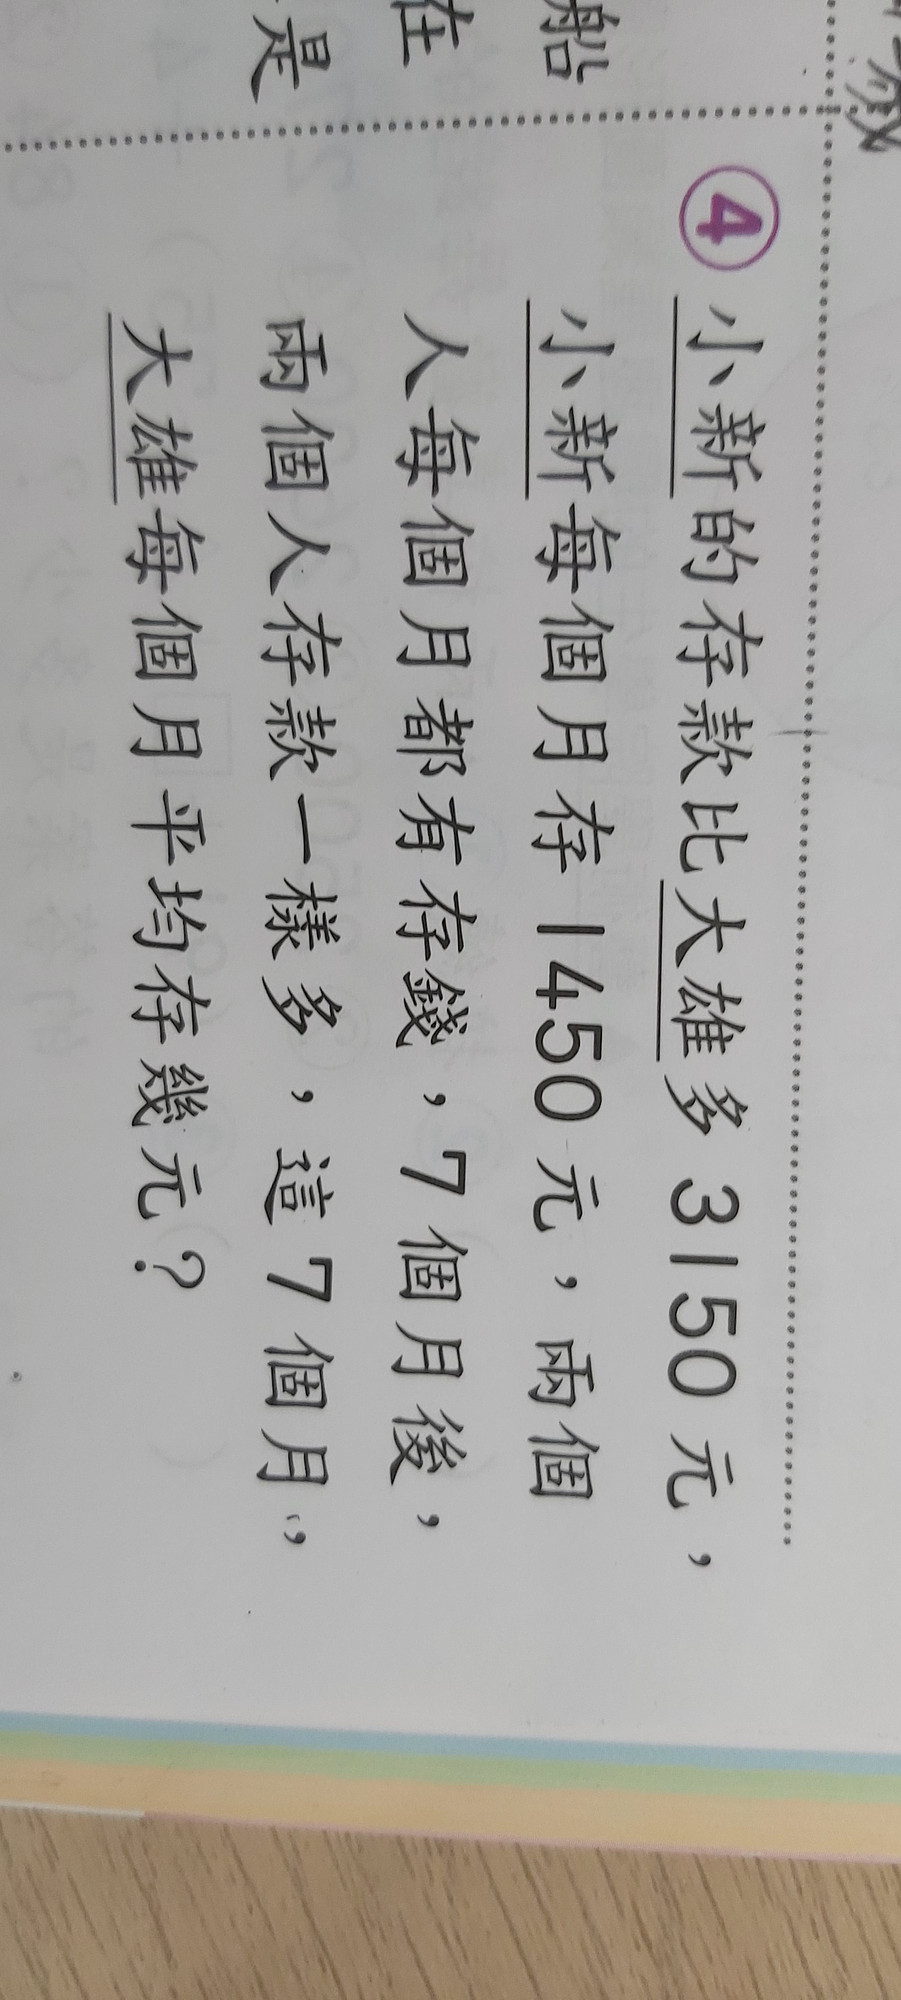 船
在
是
④ 小新的存款比大雄多 3150 元，
小新每個月存 1450 元，兩個
人每個月都有存錢，7 個月後，
兩個人存款一樣多，這 7 個月，
大雄每個月平均存幾元？